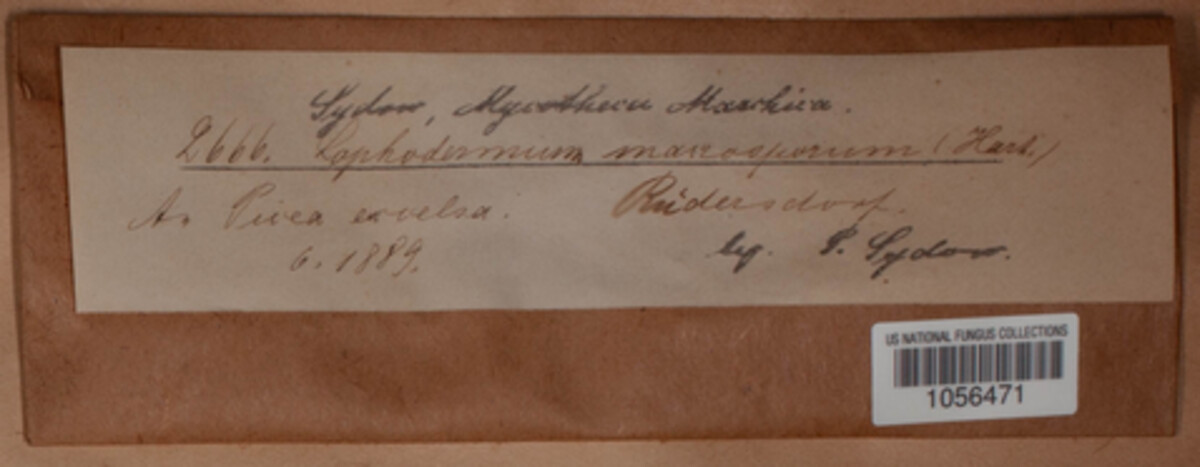 Sydow, Mycotheca Marchica.
2666. Lophodermium macrosporum (Hart.)
An Picea excelsa. Rüdersdorf.
6. 1889. leg. P. Sydow.
US NATIONAL FUNGUS COLLECTIONS
1056471